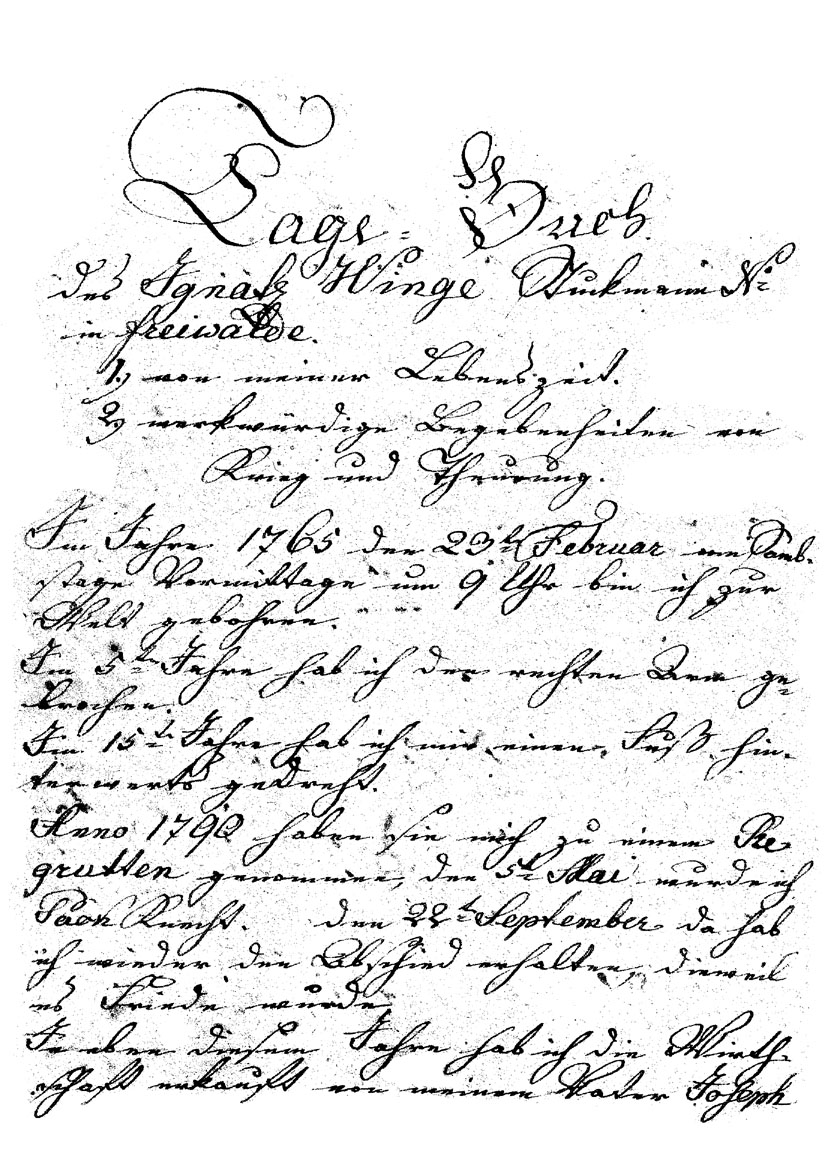 Tage-Buch
des Ignatz Winge Stuckmann No
in Freiwalde.
1.) von meiner Lebenszeit.
2.) merkwürdige Begebenheiten von
Krieg und Theurung.
Im Jahre 1765 den 23t Februar am Samb-
stage Vormittage um 9 Uhr bin ich zur
Welt gebohren.
Im 5ten Jahre hab ich den rechten Arm ge-
brochen.
Im 15t Jahre hab ich mir einen Fuß hin-
terwerts gedreht.
Anno 1790 haben sie mich zu einem Re-
grutten genommen, den 5t Mai wurde ich
Pack Knecht. den 22t September da hab
ich wieder den Abschied erhalten, dieweil
es Friede wurde
In eben diesem Jahre hab ich die Wirth-
schaft erkauft von meinem Vater Joseph